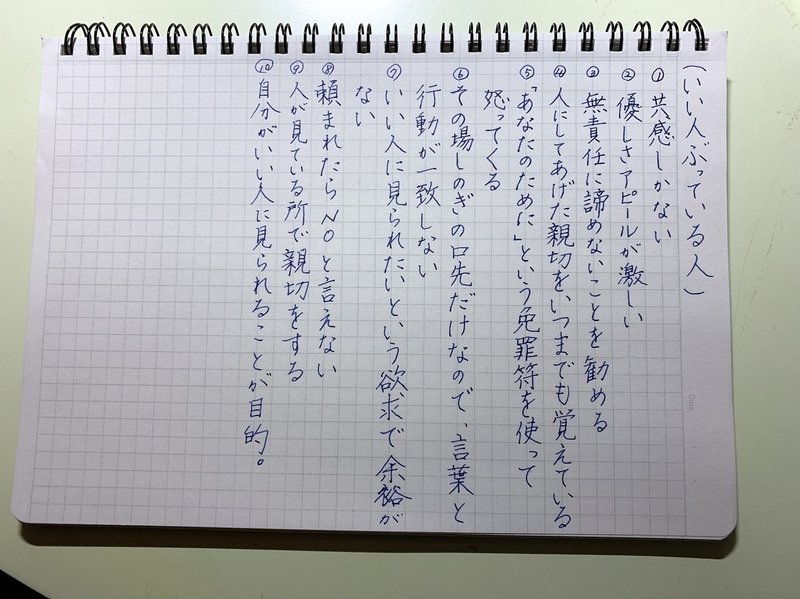 (いい人ぶっている人)
① 共感しかない
② 優しさアピールが激しい
③ 無責任に諦めないことを勧める
④ 人にしてあげた親切をいつまでも覚えている
⑤ 「あなたのために」という免罪符を使って
怒ってくる
⑥ その場しのぎの口先だけなので、言葉と
行動が一致しない
⑦ いい人に見られたいという欲求で余裕が
ない
⑧ 頼まれたらNOと言えない
⑨ 人が見ている所で親切をする
⑩ 自分がいい人に見られることが目的。